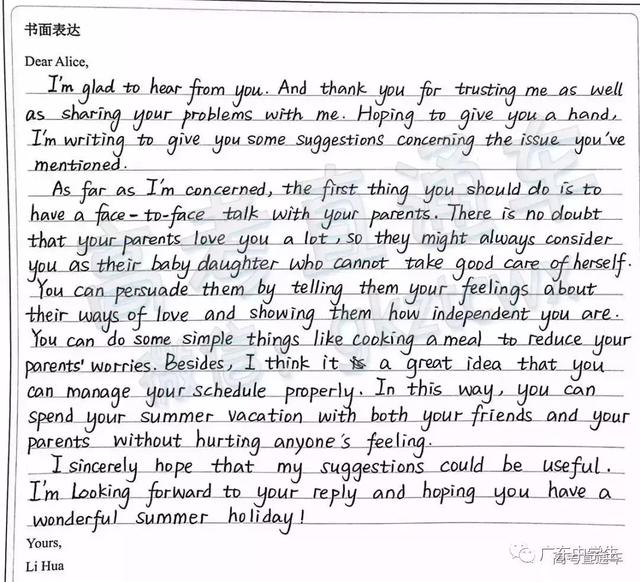 书面表达
Dear Alice,
I'm glad to hear from you. And thank you for trusting me as well
as sharing your problems with me. Hoping to give you a hand,
I'm writing to give you some suggestions concerning the issue you've
mentioned.
As far as I'm concerned, the first thing you should do is to
have a face-to-face talk with your parents. There is no doubt
that your parents love you a lot, so they might always consider
you as their baby daughter who cannot take good care of herself.
You can persuade them by telling them your feelings about
their ways of love and showing them how independent you are.
You can do some simple things like cooking a meal to reduce your
parents' worries. Besides, I think it is a great idea that you
can manage your schedule properly. In this way, you can
spend your summer vacation with both your friends and your
parents without hurting anyone's feeling.
I sincerely hope that my suggestions could be useful.
I'm looking forward to your reply and hoping you have a
wonderful summer holiday!
Yours,
Li Hua
广东中学生
高考直通车